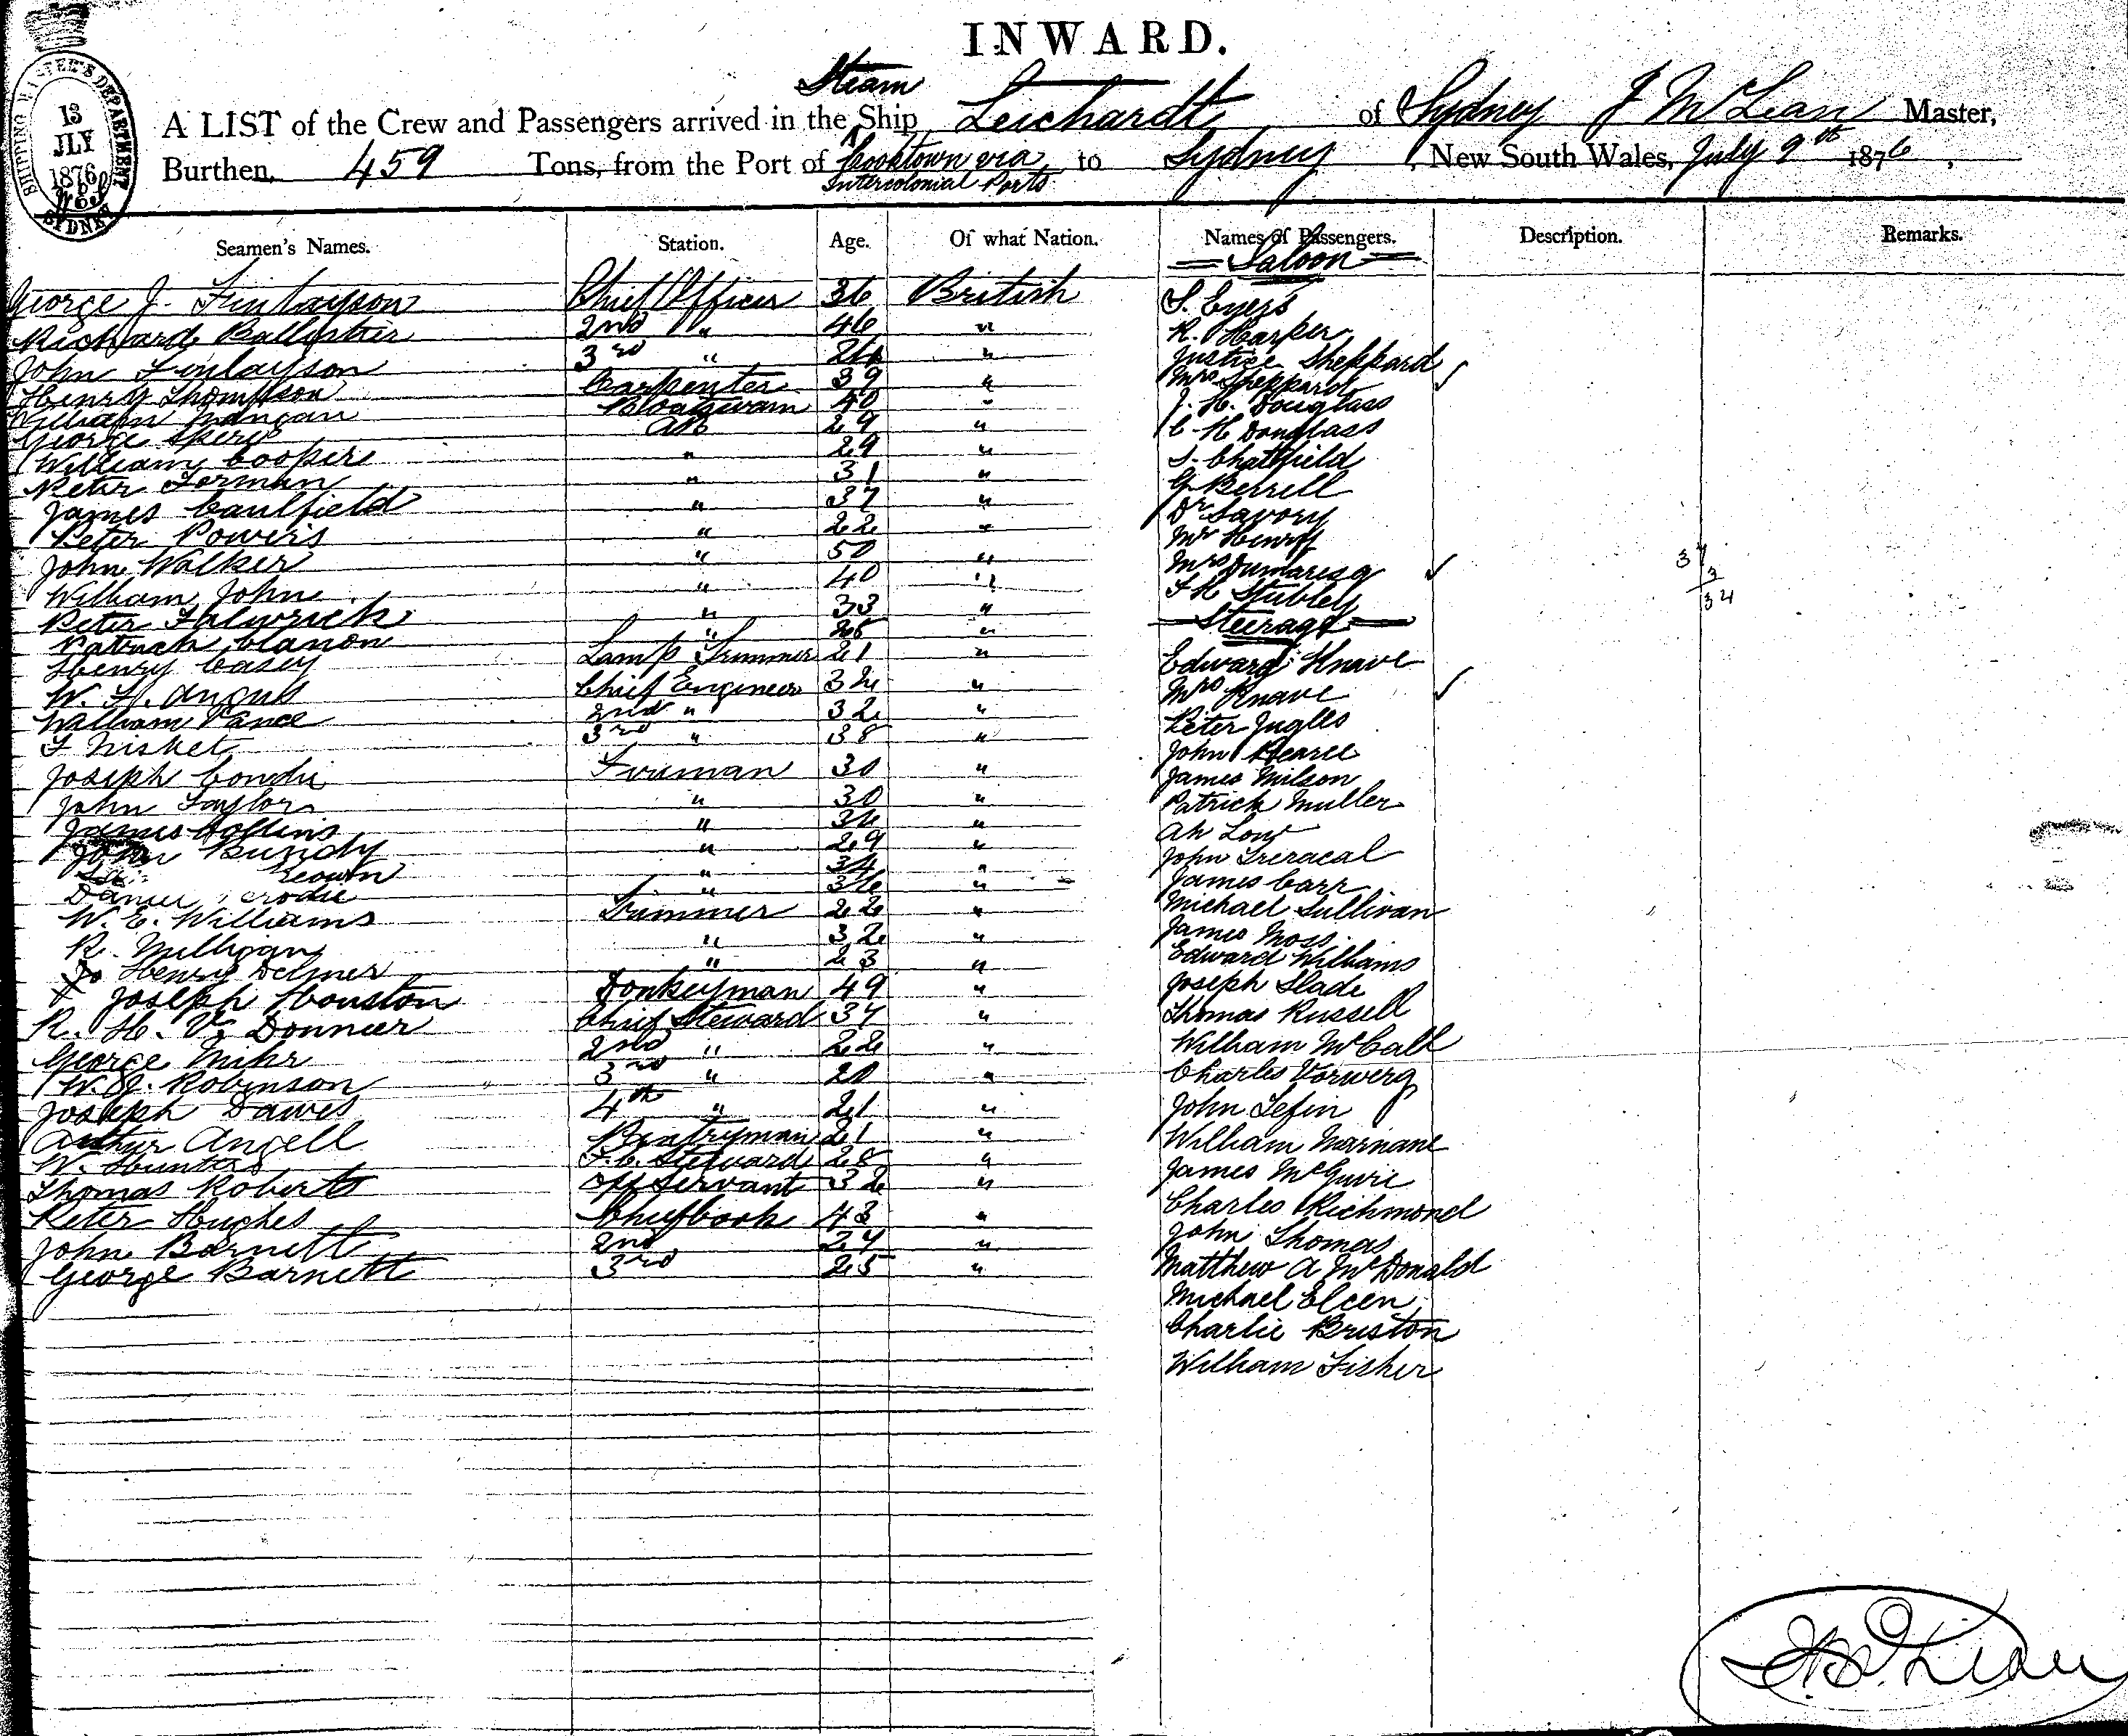 INWARD.
SHIPPING MASTER'S DEPARTMENT
13
JLY
1876
SYDNEY
Steam
A LIST of the Crew and Passengers arrived in the Ship Leichardt of Sydney J McLean Master,
Burthen, 459 Tons, from the Port of Cooktown via to Sydney, New South Wales, July 9th 1876,
Intercolonial Ports
Seamen's Names. Station. Age. Of what Nation. Names of Passengers. Description. Remarks.
Saloon
George J. Finlayson Chief Officer 36 British S. Eyers
Richard 2nd " 46 " R. Harper
John Finlayson 3rd " " Justice Sheppard
Henry Thompson Carpenter 39 " Mrs Sheppard
William Boatswain 40 " J. H. Douglass
George AB 29 " C H Douglass
William Coopers " 29 " S. Chatfield
Peter " 31 " G Berrell
James Caulfield " 37 " Dr Savory
Peter Powers " 22 " Mr Henry
John Walker " 50 " Mrs Dumaresq
William John " 40 " F R Stubley
Peter " 33 " Steerage
Patrick " "
Henry Casey Lamp Trimmer 21 " Edward Knave
W. H. Angus Chief Engineer " Mrs Knave
William Vance 2nd " 32 " Peter
F Nisket 3rd " 38 " John Pearce
Joseph Fireman 30 " James Milson
John Taylor " 30 " Patrick Muller
James Collins " " Ah Low
John Bundy " 29 " John
" 34 " James Carr
" 36 " Michael Sullivan
W. E. Williams Trimmer 22 " James Moss
R. Milligan " 32 " Edward Williams
Henry Delmer " 23 " Joseph Slade
Joseph Houston Donkeyman 49 " Thomas Russell
R. H. V. Donnier Chief Steward 37 " William McCall
George 2nd " 22 " Charles Vorwerg
W. J. Robinson 3rd " 20 " John
Joseph Dawes 4th " 21 " William Marnane
Arthur Angell Pantryman 21 " James McGuire
W. Hunter F.C. Steward 28 " Charles Richmond
Thomas Roberts Off Servant 32 " John Thomas
Peter Hughes Chief Cook 43 " Matthew A McDonald
John Barnett 2nd 27 " Michael
George Barnett 3rd 25 " Charlie Briston
William Fisher
37
3
34